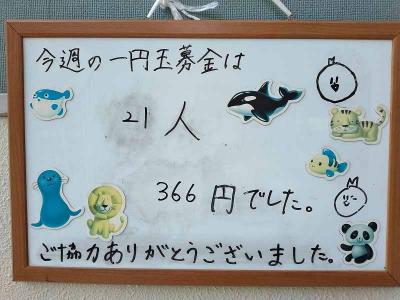 今週の一円玉募金は
21人
366円でした。
ご協力ありがとうございました。